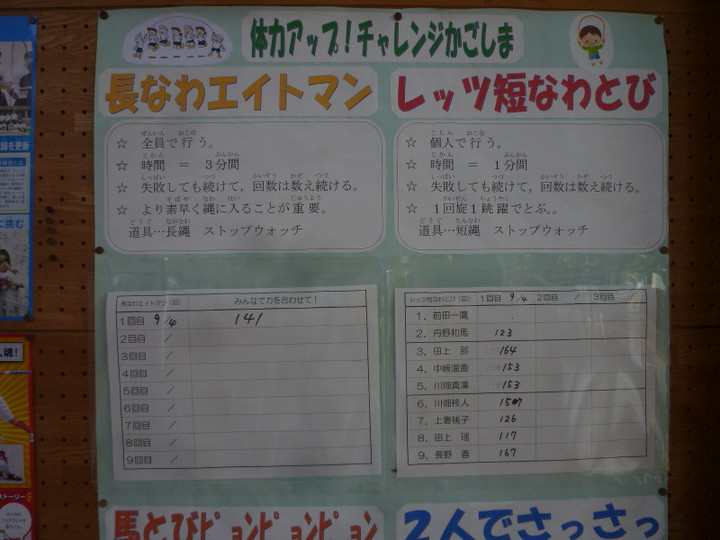 体力アップ！チャレンジかごしま
長なわエイトマン
☆ 全員で行う。
☆ 時間 ＝ ３分間
☆ 失敗しても続けて，回数は数え続ける。
☆ より素早く縄に入ることが重要。
道具…長縄 ストップウォッチ
レッツ短なわとび
☆ 個人で行う。
☆ 時間 ＝ １分間
☆ 失敗しても続けて，回数は数え続ける。
☆ １回旋１跳躍でとぶ。。
道具…短縄 ストップウォッチ
長なわエイトマン（回） みんなで力を合わせて！
1回目 9/4 141
2回目 /
3回目 /
4回目 /
5回目 /
6回目 /
7回目 /
8回目 /
9回目 /
レッツ短なわとび（回） 1回目 9/4 2回目 / 3回目 /
1．前田一鷹
2．丹野和馬 123
3．田上 那 164
4．中﨑温香 153
5．川畑真凜 153
6．川畑柊人 150
7．上妻桃子 126
8．田上 瑶 117
9．長野 香 167
馬とびピョンピョンピョン
２人でさっさっ
録を更新
に挑む
人魂！
ストーリー